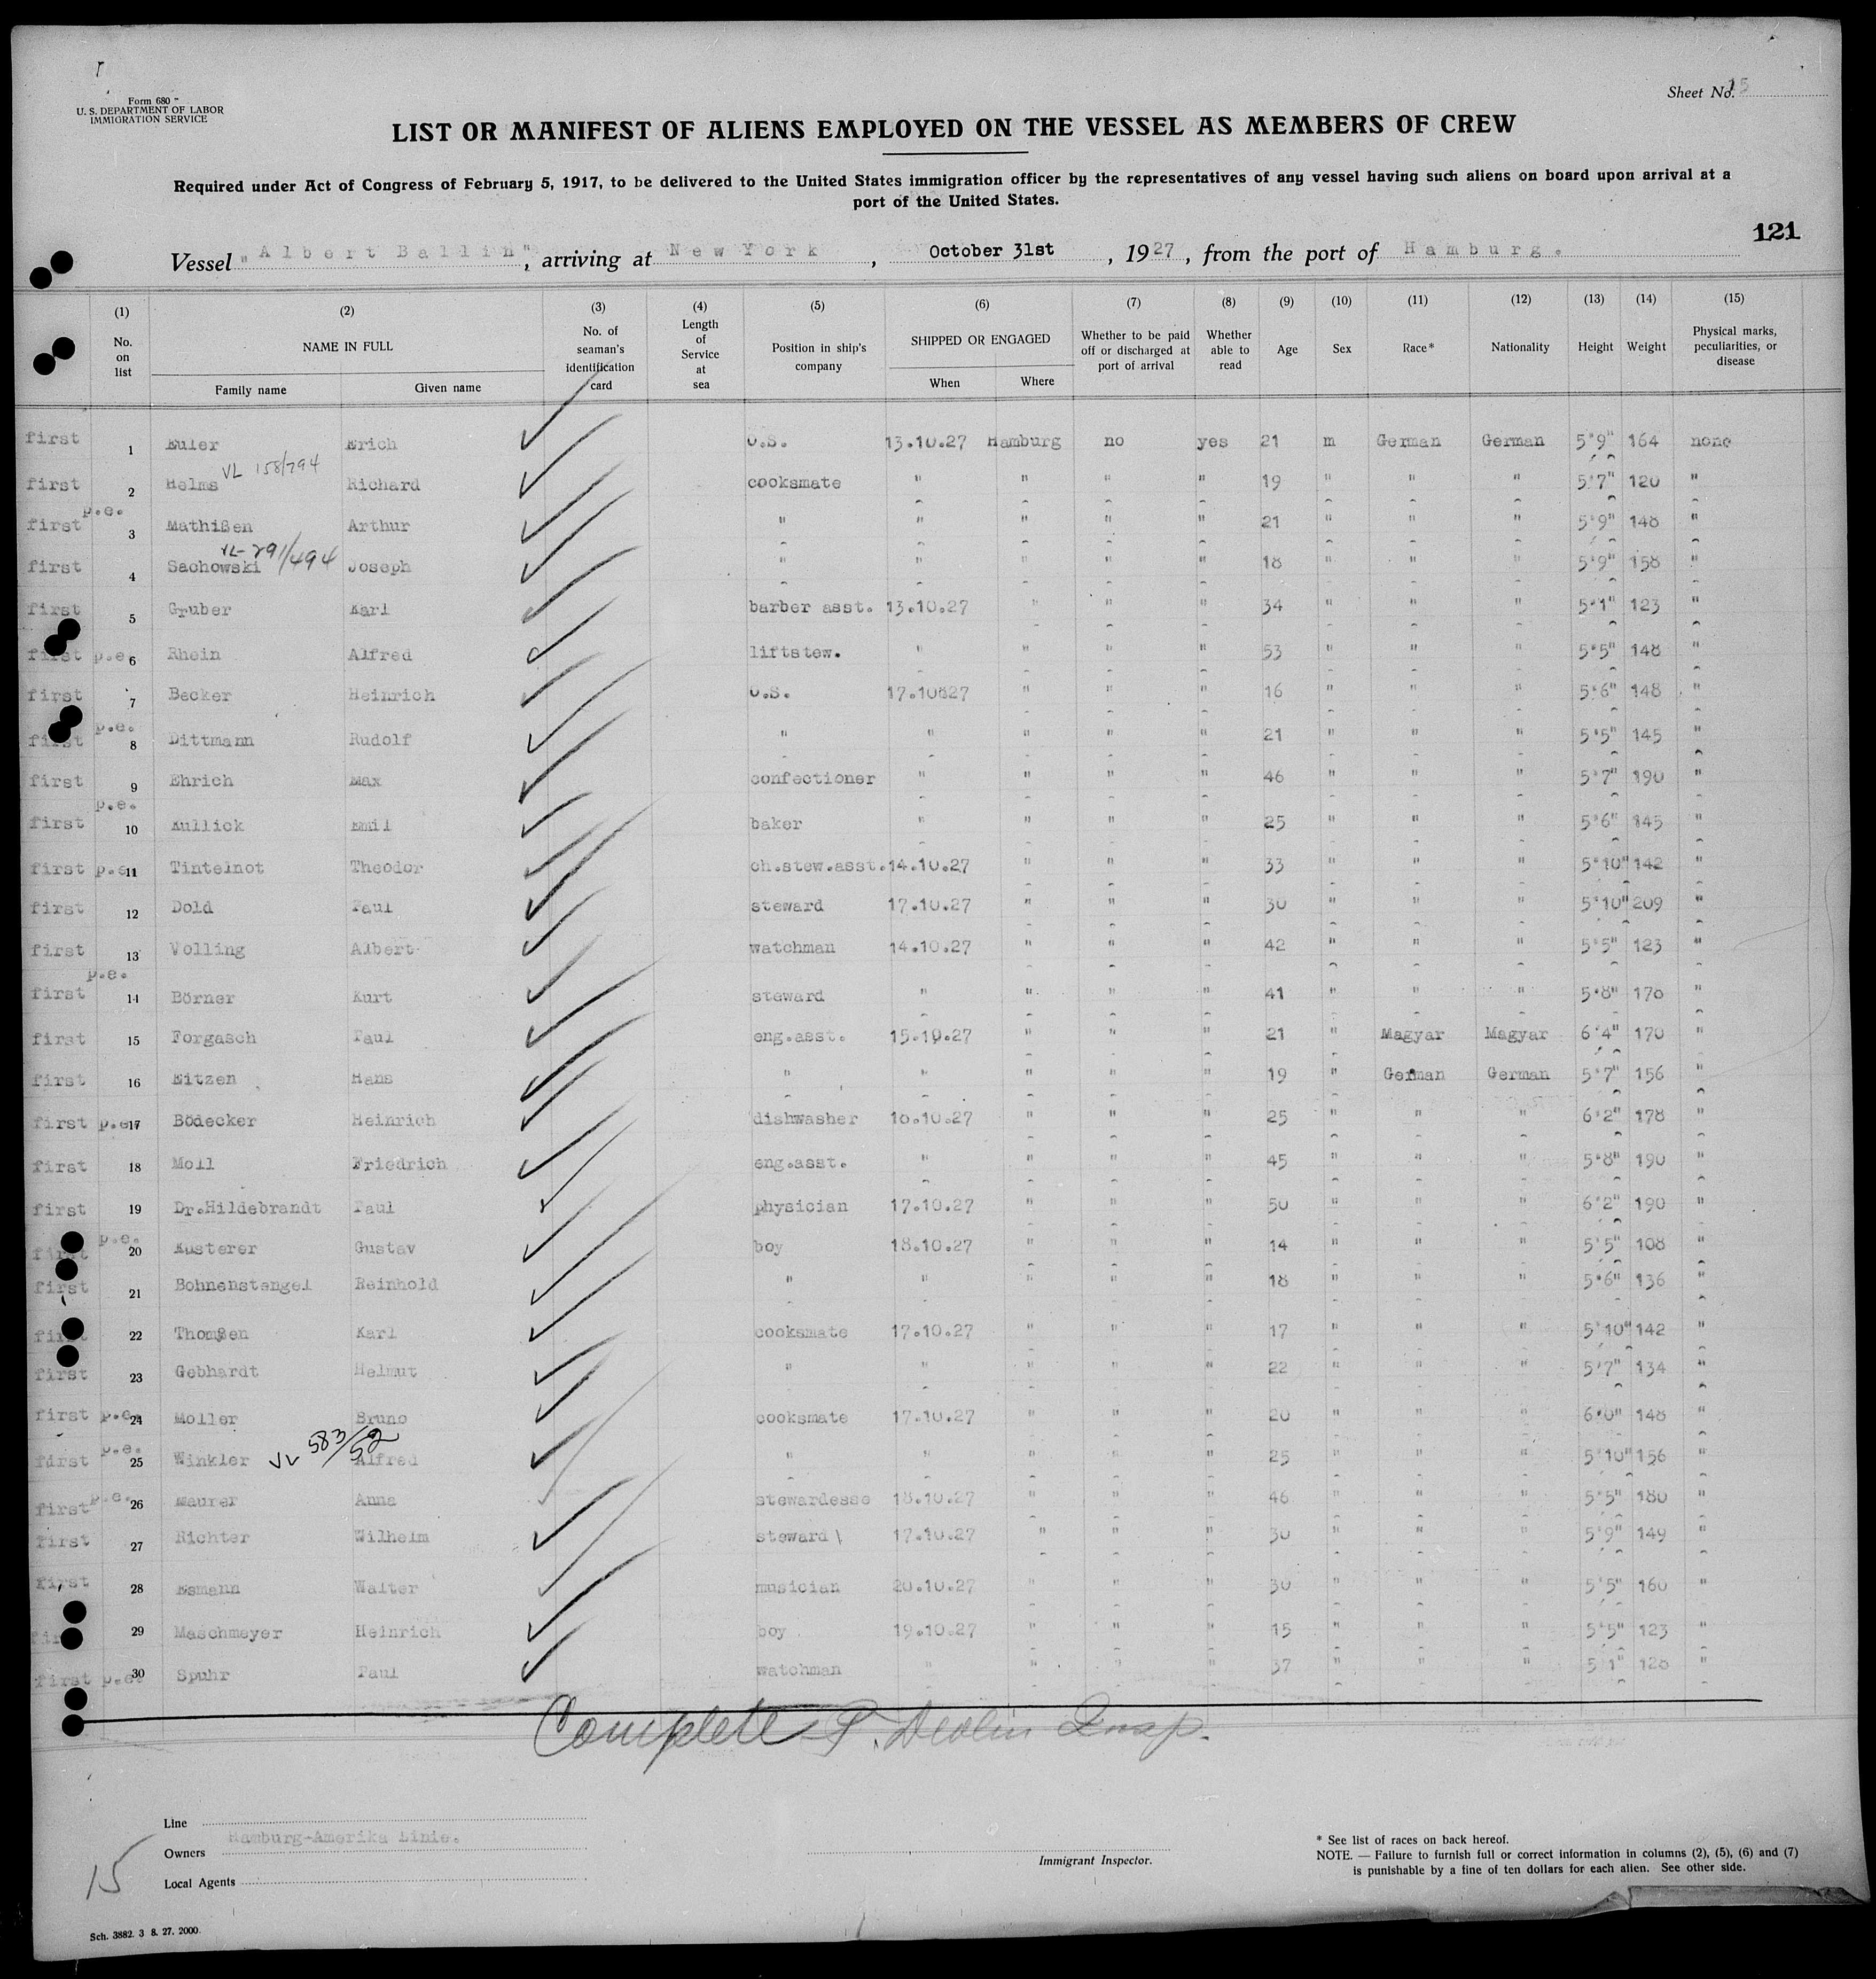 Form 680
U. S. DEPARTMENT OF LABOR
IMMIGRATION SERVICE
Sheet No. 15
LIST OR MANIFEST OF ALIENS EMPLOYED ON THE VESSEL AS MEMBERS OF CREW
Required under Act of Congress of February 5, 1917, to be delivered to the United States immigration officer by the representatives of any vessel having such aliens on board upon arrival at a
port of the United States.
121
Vessel "Albert Ballin", arriving at New York, October 31st, 1927, from the port of Hamburg.
(1) (2) (3) (4) (5) (6) (7) (8) (9) (10) (11) (12) (13) (14) (15)
No. on list NAME IN FULL No. of seaman's identification card Length of Service at sea Position in ship's company SHIPPED OR ENGAGED Whether to be paid off or discharged at port of arrival Whether able to read Age Sex Race* Nationality Height Weight Physical marks, peculiarities, or disease
Family name Given name When Where
first 1 Euler Erich O.S. 13.10.27 Hamburg no yes 21 m German German 5'9" 164 none
VL 158/794
first 2 Helms Richard cooksmate " " " " 19 " " " 5'7" 120 "
p.e.
first 3 Mathißen Arthur " " " " " 21 " " " 5'9" 148 "
VL-291/494
first 4 Sachowski Joseph " " " " " 18 " " " 5'9" 158 "
first 5 Gruber Karl barber asst. 13.10.27 " " " 34 " " " 5'1" 123 "
first p.e. 6 Rhein Alfred liftstew. " " " " 53 " " " 5'5" 148 "
first 7 Becker Heinrich O.S. 17.10827 " " " 16 " " " 5'6" 148 "
p.e.
first 8 Dittmann Rudolf " " " " " 21 " " " 5'5" 145 "
first 9 Ehrich Max confectioner " " " " 46 " " " 5'7" 190 "
p.e.
first 10 Kullick Emil baker " " " " 25 " " " 5'6" 145 "
first p.e. 11 Tintelnot Theodor ch.stew.asst. 14.10.27 " " " 33 " " " 5'10" 142 "
first 12 Dold Paul steward 17.10.27 " " " 30 " " " 5'10" 209 "
first 13 Volling Albert watchman 14.10.27 " " " 42 " " " 5'5" 123 "
p.e.
first 14 Börner Kurt steward " " " " 41 " " " 5'8" 170 "
first 15 Forgasch Paul eng.asst. 15.10.27 " " " 21 " Magyar Magyar 6'4" 170 "
first 16 Eitzen Hans " " " " " 19 " German German 5'7" 156 "
first p.e. 17 Bödecker Heinrich dishwasher 16.10.27 " " " 25 " " " 6'2" 178 "
first 18 Moll Friedrich eng.asst. " " " " 45 " " " 5'8" 190 "
first 19 Dr.Hildebrandt Paul physician 17.10.27 " " " 50 " " " 6'2" 190 "
p.e.
first 20 Kusterer Gustav boy 18.10.27 " " " 14 " " " 5'5" 108 "
first 21 Bohnenstengel Reinhold " " " " " 18 " " " 5'6" 136 "
first 22 Thomßen Karl cooksmate 17.10.27 " " " 17 " " " 5'10" 142 "
first 23 Gebhardt Helmut " " " " " 22 " " " 5'7" 134 "
first p.e. 24 Moller Bruno cooksmate 17.10.27 " " " 20 " " " 6'0" 148 "
p.e. VL 583/52
first 25 Winkler Alfred " " " " " 25 " " " 5'10" 156 "
first p.e. 26 Maurer Anna stewardesse 18.10.27 " " " 46 " " " 5'5" 180 "
first 27 Richter Wilhelm steward 17.10.27 " " " 30 " " " 5'9" 149 "
first 28 Esmann Walter musician 20.10.27 " " " 30 " " " 5'5" 160 "
first 29 Maschmeyer Heinrich boy 19.10.27 " " " 15 " " " 5'5" 123 "
first p.e. 30 Spuhr Paul watchman " " " " 37 " " " 5'1" 128 "
Complete P. Devlin Insp.
Line
Hamburg-Amerika Linie.
Owners
Local Agents
Immigrant Inspector.
* See list of races on back hereof.
NOTE. — Failure to furnish full or correct information in columns (2), (5), (6) and (7)
is punishable by a fine of ten dollars for each alien. See other side.
15
Sch. 3882. 3 8. 27. 2000.